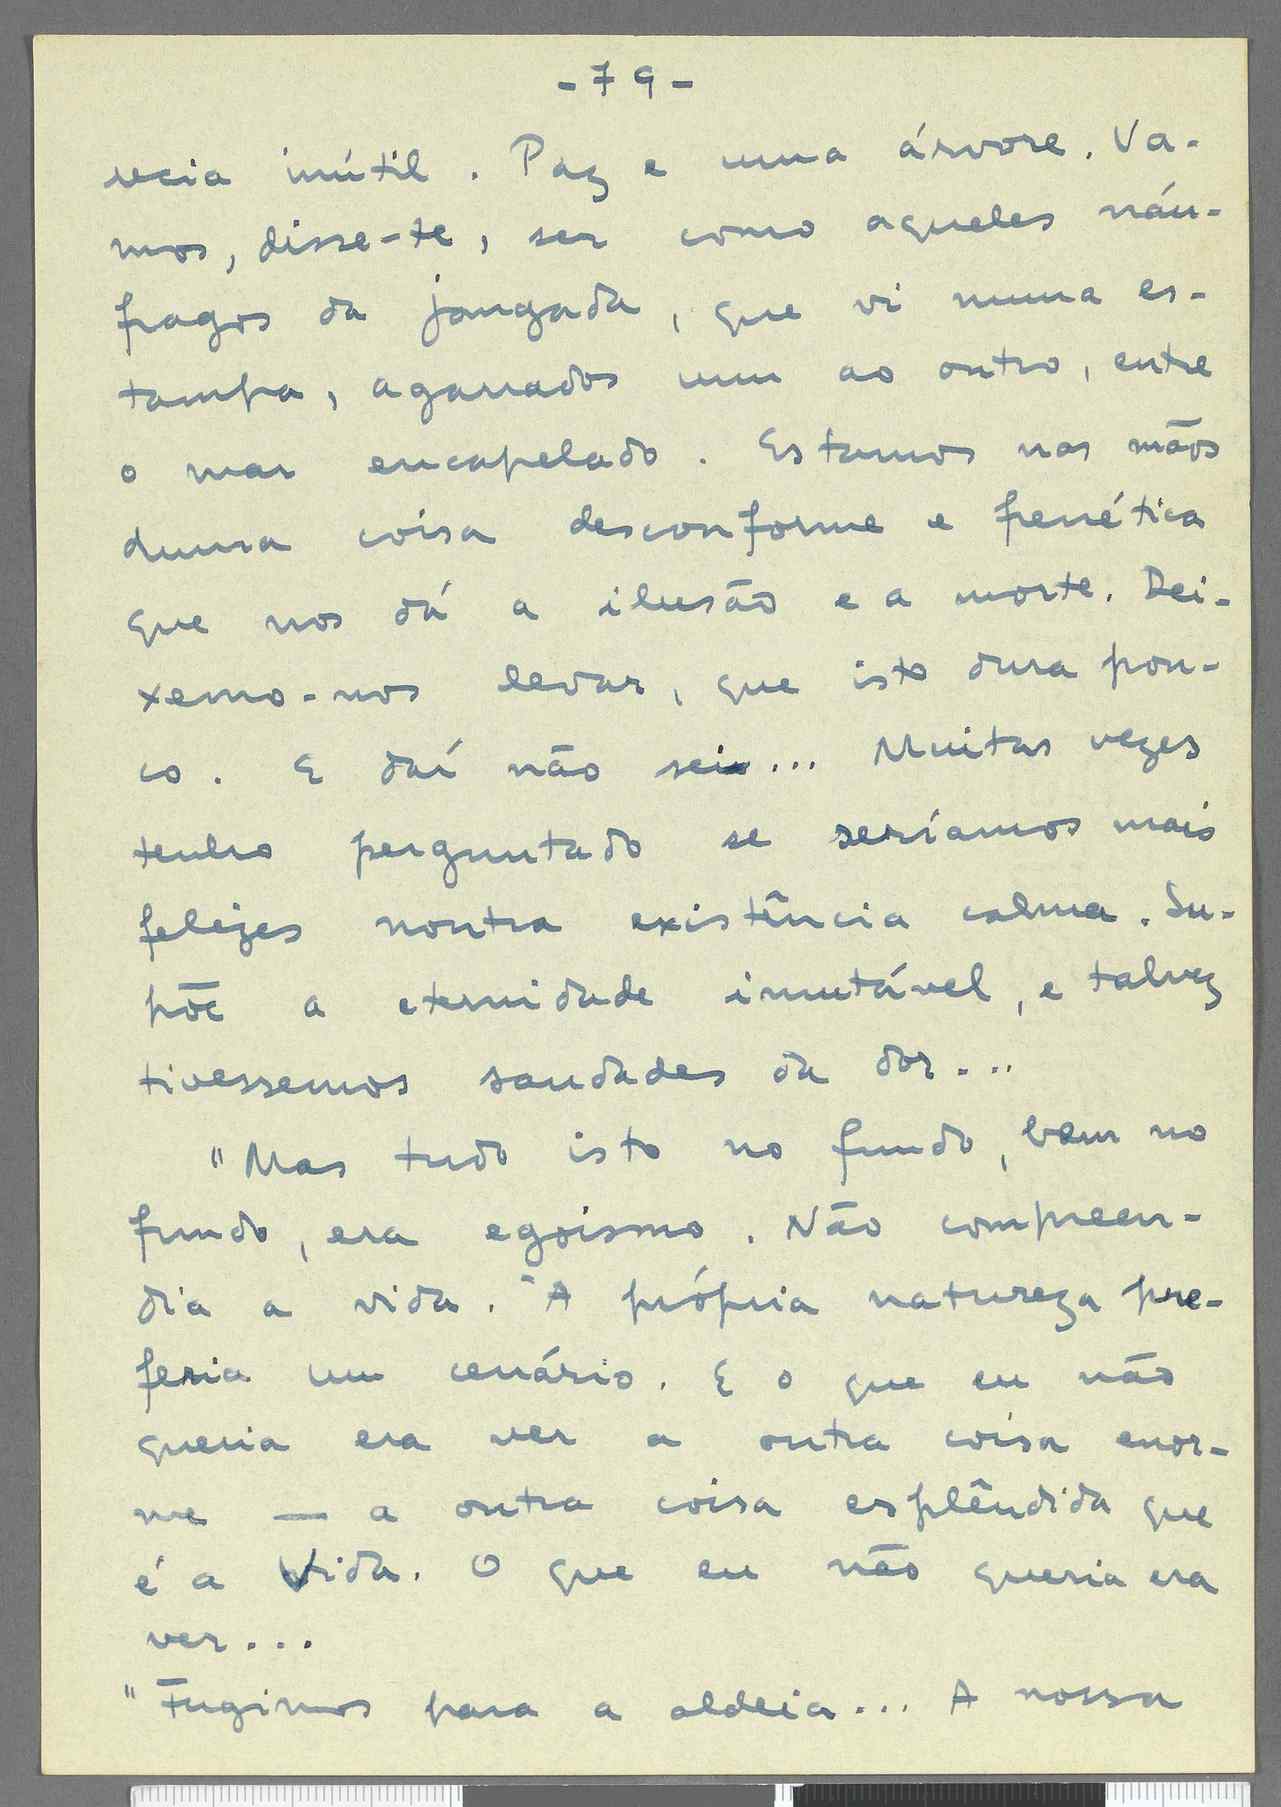 -79-
recia inútil. Paz e uma árvore. Va-
mos, disse-te, ser como aqueles náu-
fragos da jangada, que vi numa es-
tampa, agarrados um ao outro, entre
o mar encapelado. Estamos nas mãos
duma coisa desconforme e frenética
que nos dá a ilusão e a morte. Dei-
xemo-nos levar, que isto dura pou-
co. E daí não sei... Muitas vezes
tenho perguntado se seríamos mais
felizes noutra existência calma. Su-
põe a eternidade imutável, e talvez
tivessemos saudades da dor...
"Mas tudo isto no fundo, bem no
fundo, era egoismo. Não compreen-
dia a vida. À própria natureza pre-
feria um cenário. E o que eu não
queria era ver a outra coisa enor-
me — a outra coisa esplêndida que
é a Vida. O que eu não queria era
ver...
"Fugimos para a aldeia... A nossa